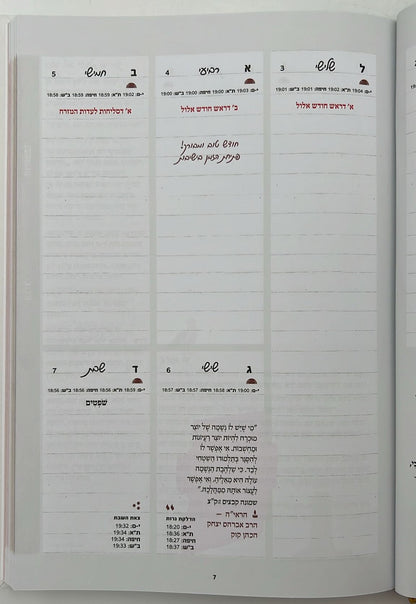 ל שלישי 3
י-ם: 19:04 ת"א: 19:02 חיפה: 19:01 ב"ש: 19:01
א' דראש חודש אלול
א רביעי 4
י-ם: 19:03 ת"א: 19:00 חיפה: 19:00 ב"ש: 19:00
ב' דראש חודש אלול
חודש טוב ומבורך!
פתיחת הזמן בישיבות
ב חמישי 5
י-ם: 19:02 ת"א: 18:59 חיפה: 18:59 ב"ש: 18:58
א' דסליחות לעדות המזרח
ג שישי 6
י-ם: 19:00 ת"א: 18:58 חיפה: 18:57 ב"ש: 18:57
"מי שיש לו נשמה של יוצר
מוכרח להיות יוצר רעיונות
ומחשבות. אי אפשר לו
להסגר בתלמודו השטחי
לבד. כי שלהבת הנשמה
עולה היא מאליה, ואי אפשר
לעצור אותה ממהלכה."
שמונה קבצים ג,קצ
הראי"ה –
הרב אברהם יצחק
הכהן קוק
הדלקת נרות
י-ם: 18:20
ת"א: 18:36
חיפה: 18:27
ב"ש: 18:37
ד שבת 7
י-ם: 18:59 ת"א: 18:56 חיפה: 18:56 ב"ש: 18:56
שֹׁפְטִים
צאת השבת
י-ם: 19:32
ת"א: 19:34
חיפה: 19:34
ב"ש: 19:33
7